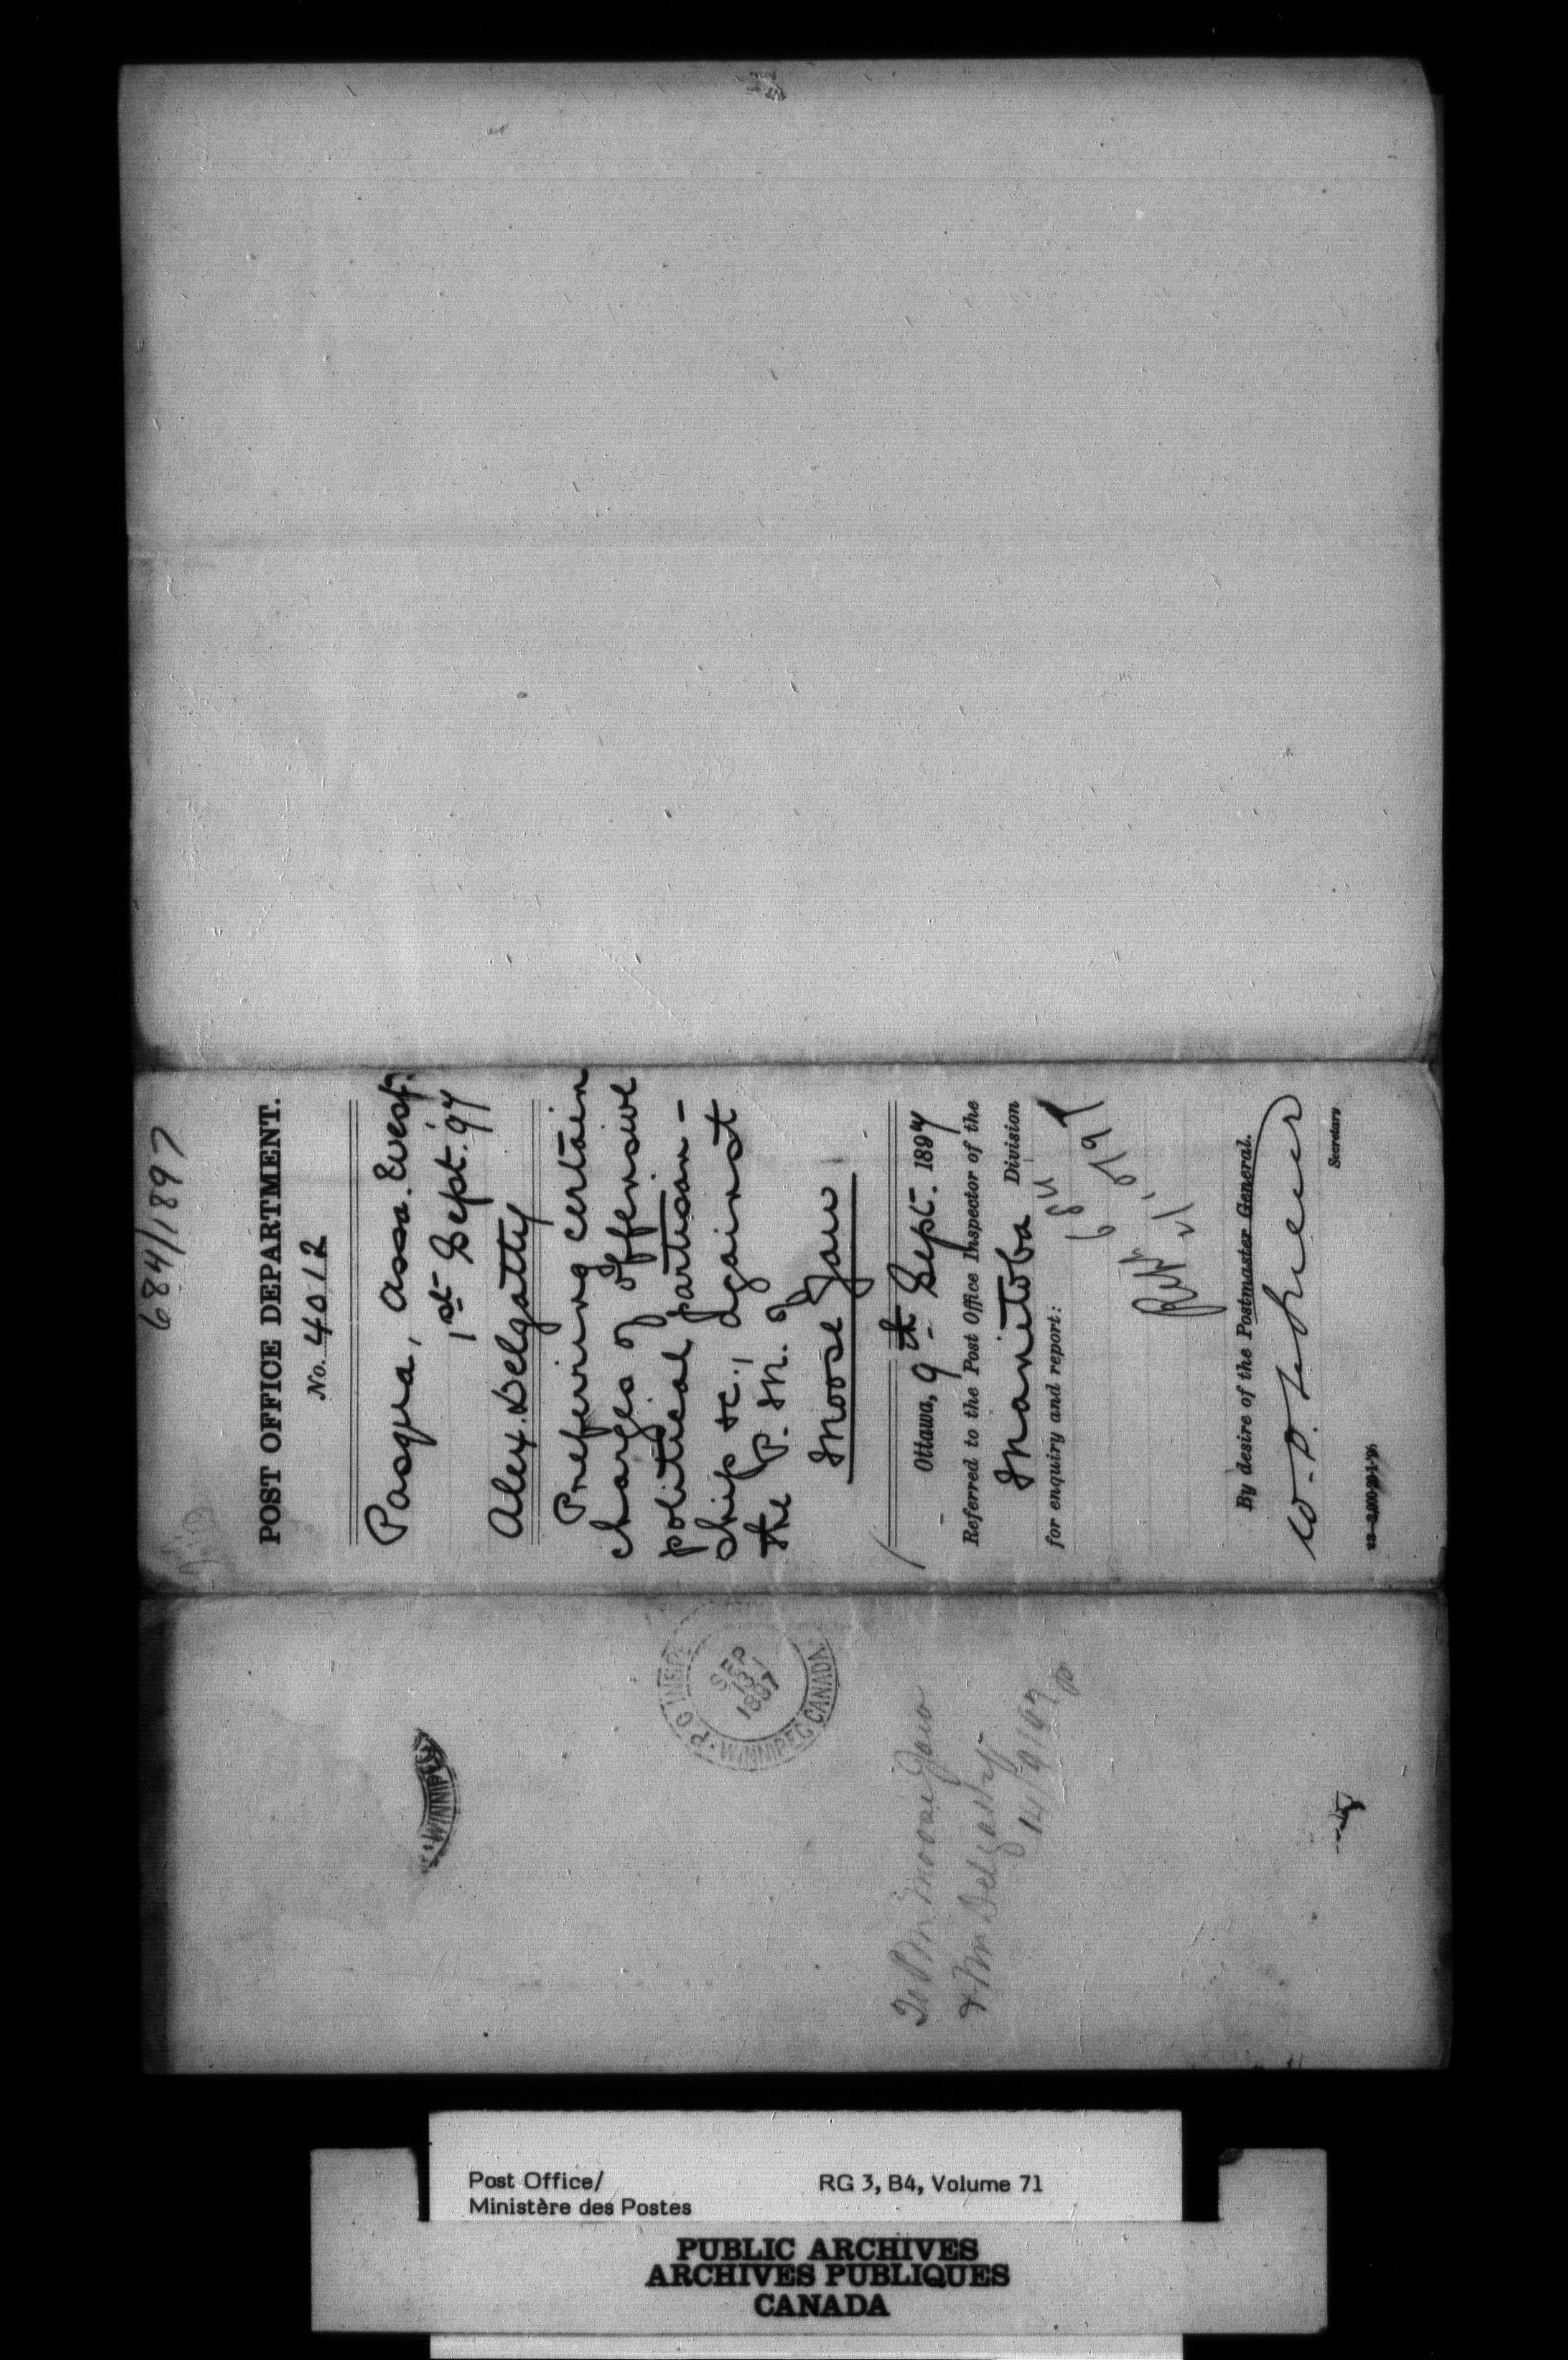 684/1897
POST OFFICE DEPARTMENT.
No. 4012
Pasqua, Assa. West.
1st Sept. 97
Alex. Delgatty
Preferring certain
charges of offensive
political partisan-
ship &c., against
the P. M. of
Moose Jaw
Ottawa, 9th Sept. 1897
Referred to the Post Office Inspector of the
Manitoba Division
for enquiry and report:
By desire of the Postmaster General.
Secretary
P.O. INSPE
SEP
13
1897
WINNIPEG CANADA
WINNIPEG
To PM Moose Jaw
& Mr Delgatty
14/9/97
Post Office/
Ministère des Postes
RG 3, B4, Volume 71
PUBLIC ARCHIVES
ARCHIVES PUBLIQUES
CANADA